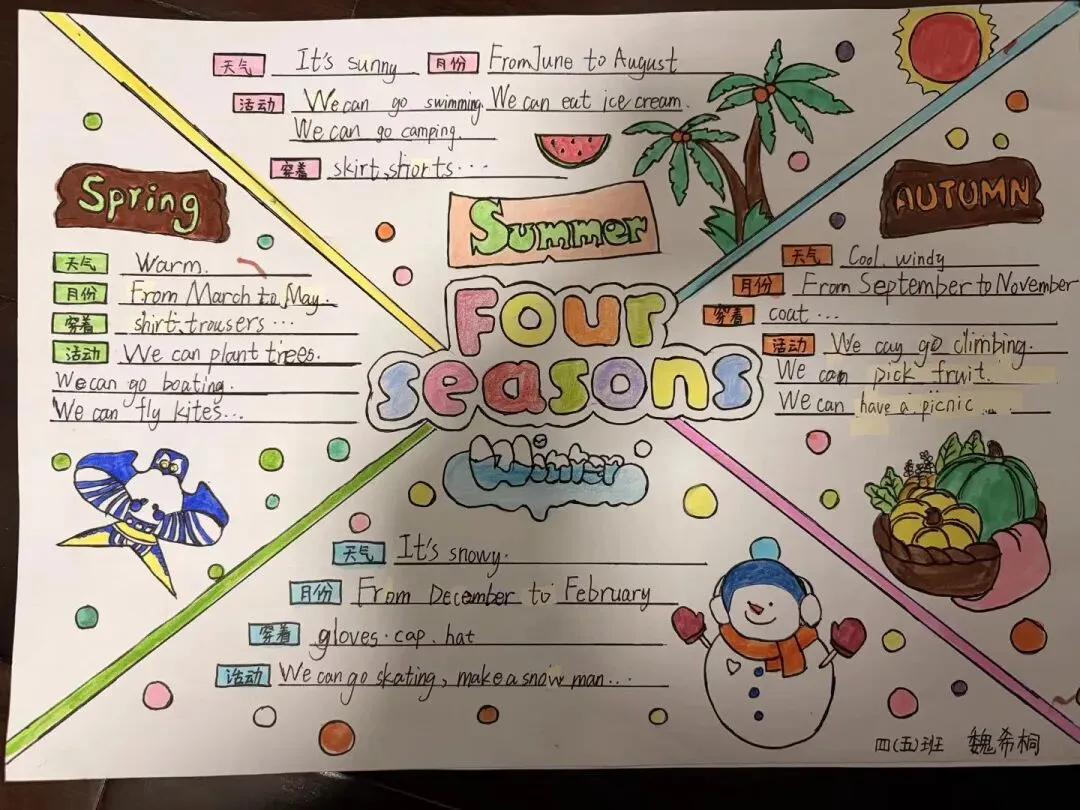 天气 It's sunny 月份 From June to August
活动 We can go swimming. We can eat ice cream.
We can go camping.
穿着 skirt, shorts...
Summer
Spring
天气 Warm.
月份 From March to May.
穿着 shirt, trousers...
活动 We can plant trees.
We can go boating.
We can fly kites...
Four
seasons
AUTUMN
天气 Cool, windy
月份 From September to November
穿着 coat...
活动 We cay go climbing.
We can pick fruit.
We can have a picnic....
Winter
天气 It's snowy.
月份 From December to February
穿着 gloves. cap. hat
活动 We can go skating, make a snow man...
四(五)班 魏希桐